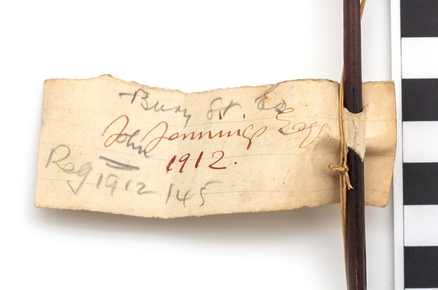 Bury St. Ed
John Jennings Esq
1912.
Reg 1912/145